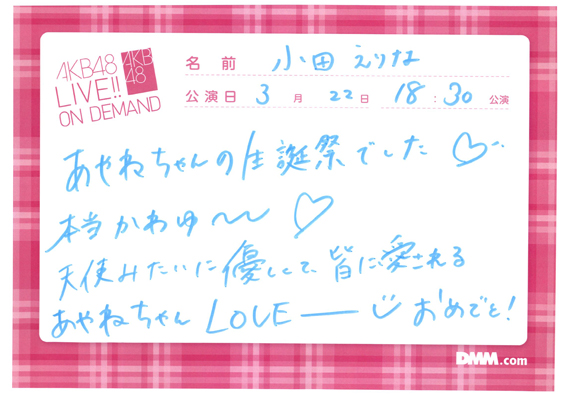 AKB48
LIVE!!
ON DEMAND
AKB
48
名前 小田えりな
公演日 3月22日 18:30公演
あやねちゃんの生誕祭でした♡
本当かわゆ〜〜♡
天使みたいに優しくて、皆に愛される
あやねちゃん LOVE—— おめでと!
DMM.com